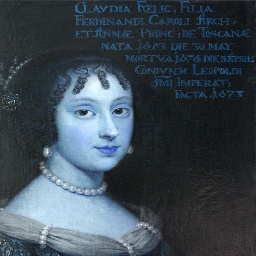 CLAVDIA FELIC, FILIA
FERDINANDI CAROLI ARCH.
ET ANNÆ PRINC, DE TOSCANÆ
NATA 1653 DIE 30 MAY
MORTVA 1676 DIE 8 APRIL
CONIVNX LEOPOLDI
IMI IMPERAT,
FACTA 1673